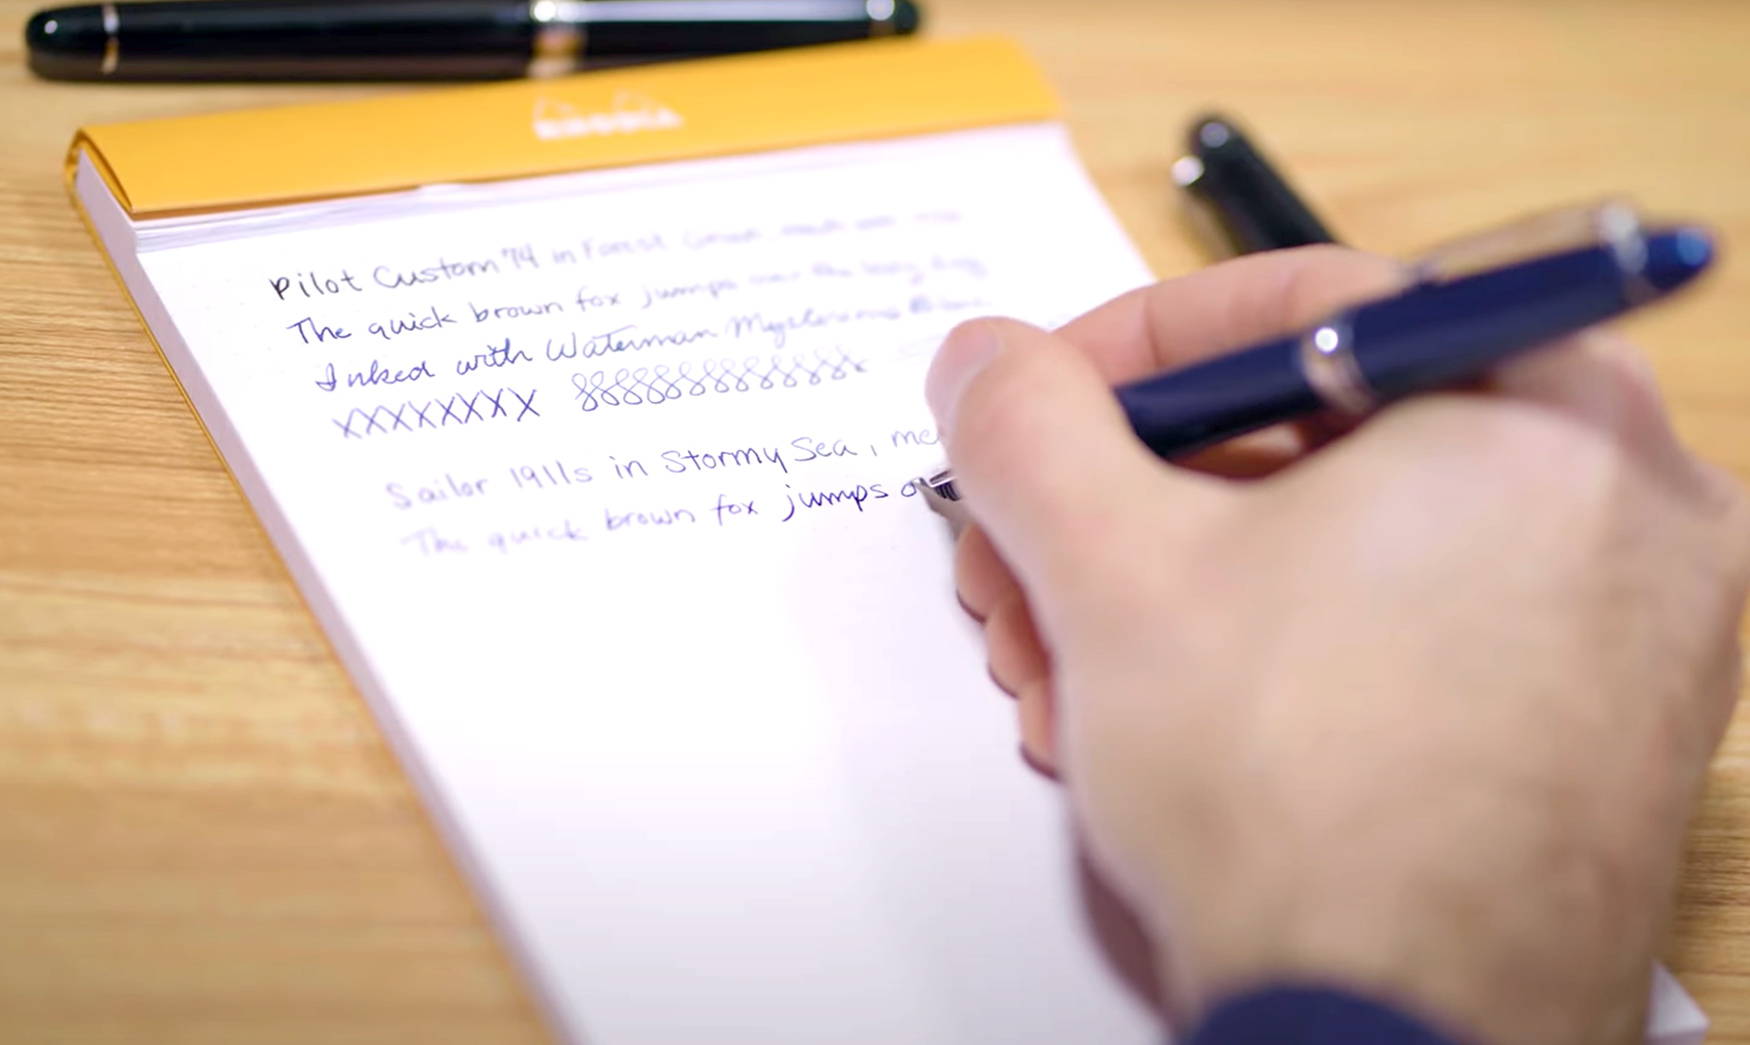 RHODIA
Pilot Custom '74 in Forest Green, medium nib
The quick brown fox jumps over the lazy dog
Inked with Waterman Mysterious Blue
XXXXXXXX 8888888888888
Sailor 1911s in Stormy Sea, me
The quick brown fox jumps o